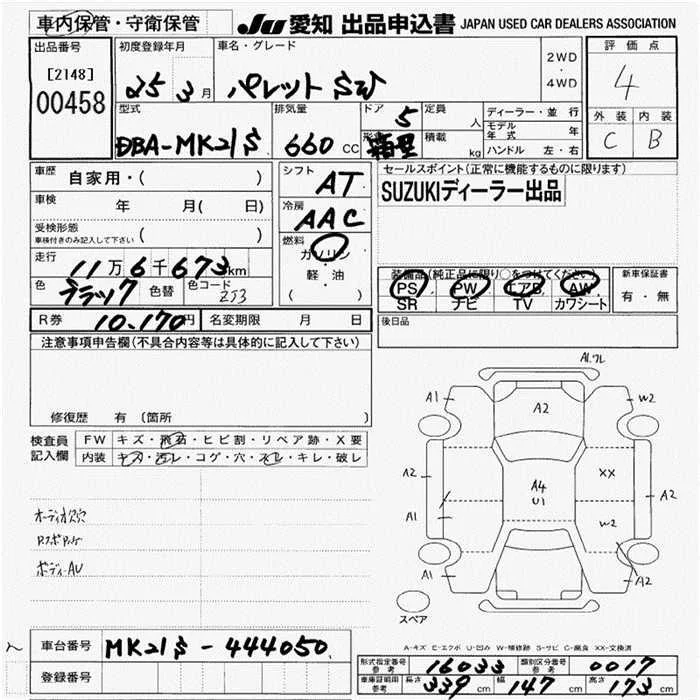 車内保管・守衛保管 JU 愛知 出品申込書 JAPAN USED CAR DEALERS ASSOCIATION
出品番号 初度登録年月 車名・グレード 評価点
[2148] 25 3月 パレット SW 2WD・4WD 4
00458
型式 排気量 ドア 5 定員 人 ディーラー・並行 外装 内装
DBA-MK21S 660 CC 形状 箱型 積載 kg モデル年式 年 C B
ハンドル 左・右
車歴 自家用・( ) シフト AT セールスポイント(正常に機能するものに限ります)
車検 年 月( 日) 冷房 AAC SUZUKIディーラー出品
受検形態 車検付きのみ記入して下さい ( )
燃料 ガソリン
走行 11万6千673km 軽・油 装備品(純正品に限り○をつけてください) 新車保証書
色 ブラック 色替 色コード ZJ3 ( ) PS PW エアB AW 有・無
SR ナビ TV カワシート
R券 10,170円 名変期限 月 日 後日品
注意事項申告欄(不具合内容等は具体的に記入して下さい)
修復歴 有 (箇所
検査員記入欄 FW キズ・飛石・ヒビ割・リペア跡・X要
内装 キズ・汚レ・コゲ・穴・スレ・キレ・破レ
オーディオ欠穴
ボディーAU
A1.ワレ
A1 W2
A2
A2 A4 XX
U1 A2
A1 W2
A1 A2
スペア
A-キズ E-エクボ U-凹み W-補修跡 S-サビ C-腐食 XX-交換済
車台番号 MK21S-444050
登録番号
形式指定番号 参考 16033 類別区分番号 参考 0017
車庫証明用 参考 長さ 339 cm 幅 147 cm 高さ 173 cm